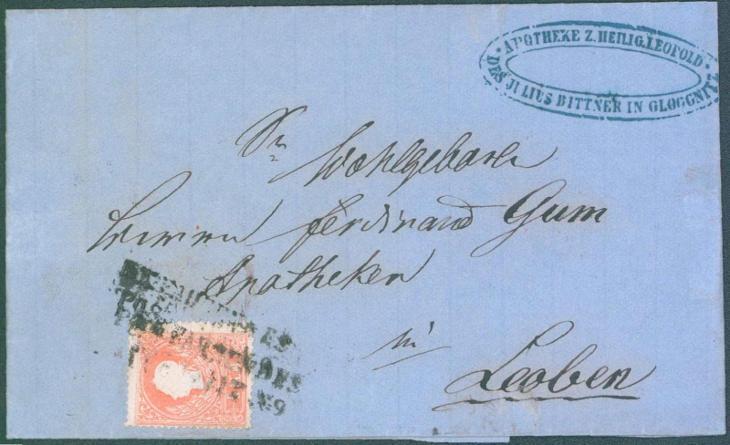 APOTHEKE Z. HEILIG. LEOPOLD
DES JULIUS BITTNER IN GLOGGNITZ
Sr Wohlgeboren
Herrn Ferdinand Gum
Apotheker
in
Leoben
No 9